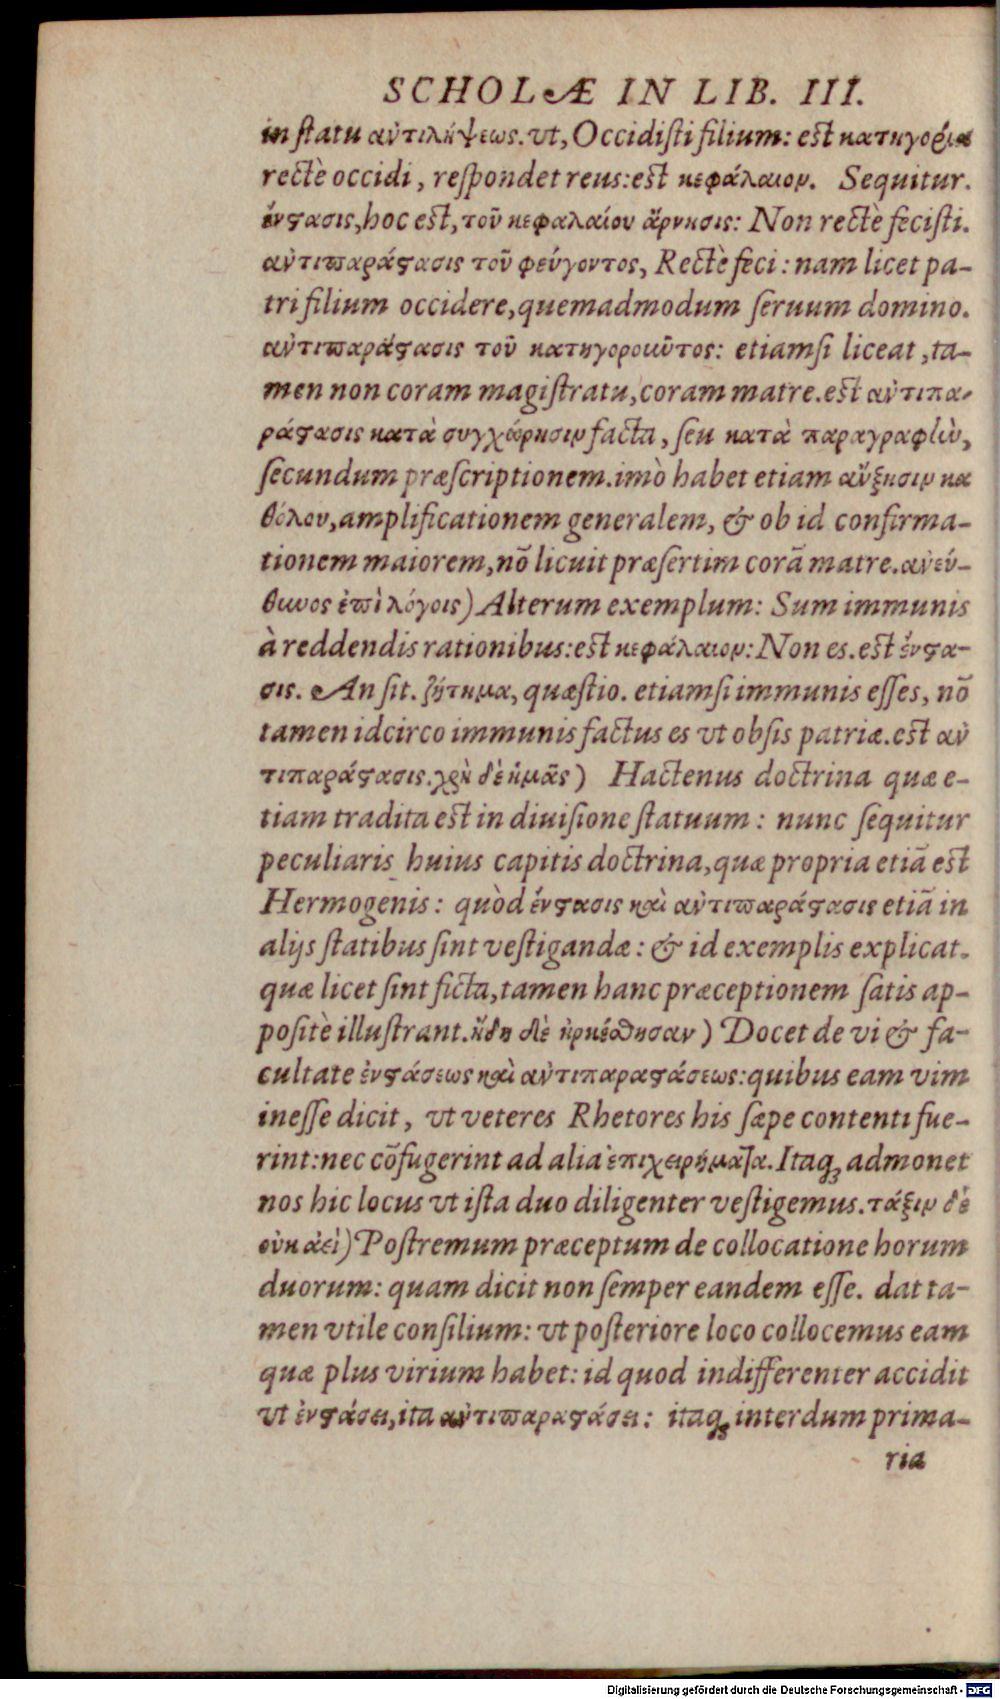 SCHOLÆ IN LIB. III.
in ſtatu ἀντιλήψεως. vt, Occidiſti filium: eſt κατηγορία
rectè occidi, reſpondet reus: eſt κεφάλαιον. Sequitur.
ἔνϛασις, hoc eſt, τοῦ κεφαλαίου ἄρνησις: Non rectè feciſti.
ἀντιπαράϛασις τοῦ φεύγοντος, Rectè feci: nam licet pa-
tri filium occidere, quemadmodum ſeruum domino.
ἀντιπαράϛασις τοῦ κατηγοροῦντος: etiamſi liceat, ta-
men non coram magiſtratu, coram matre. eſt ἀντιπα-
ράϛασις κατὰ συγχώρησιν facta, ſeu κατὰ παραγραφὴν,
ſecundum præſcriptionem. imò habet etiam αὔξησιν κα
θόλου, amplificationem generalem, & ob id confirma-
tionem maiorem, nō licuit præſertim corā matre. ἀνεύ-
θυνος ἐπὶ λόγοις) Alterum exemplum: Sum immunis
à reddendis rationibus: eſt κεφάλαιον: Non es. eſt ἔνϛα-
σις. An ſit. ζήτημα, quæſtio. etiamſi immunis eſſes, nō
tamen idcirco immunis factus es vt obſis patriæ. eſt ἀν
τιπαράϛασις. χρὴ δὲ ἡμᾶς) Hactenus doctrina quæ e-
tiam tradita eſt in diuiſione ſtatuum: nunc ſequitur
peculiaris huius capitis doctrina, quæ propria etiā eſt
Hermogenis: quòd ἔνϛασις καὶ ἀντιπαράϛασις etiā in
alijs ſtatibus ſint veſtigandæ: & id exemplis explicat.
quæ licet ſint ficta, tamen hanc præceptionem ſatis ap-
poſitè illuſtrant. ἤδη δὲ ἠρκέσθησαν) Docet de vi & fa-
cultate ἐνϛάσεως καὶ ἀντιπαραϛάσεως: quibus eam vim
ineſſe dicit, vt veteres Rhetores his ſæpe contenti fue-
rint: nec cōfugerint ad alia ἐπιχειρήματα. Itaq; admonet
nos hic locus vt iſta duo diligenter veſtigemus. τάξιν δὲ
οὐκ ἀεὶ) Poſtremum præceptum de collocatione horum
duorum: quam dicit non ſemper eandem eſſe. dat ta-
men vtile conſilium: vt poſteriore loco collocemus eam
quæ plus virium habet: id quod indifferenter accidit
vt ἐνϛάσει, ita ἀντιπαραϛάσει: itaq; interdum prima-
ria
Digitalisierung gefördert durch die Deutsche Forschungsgemeinschaft - DFG